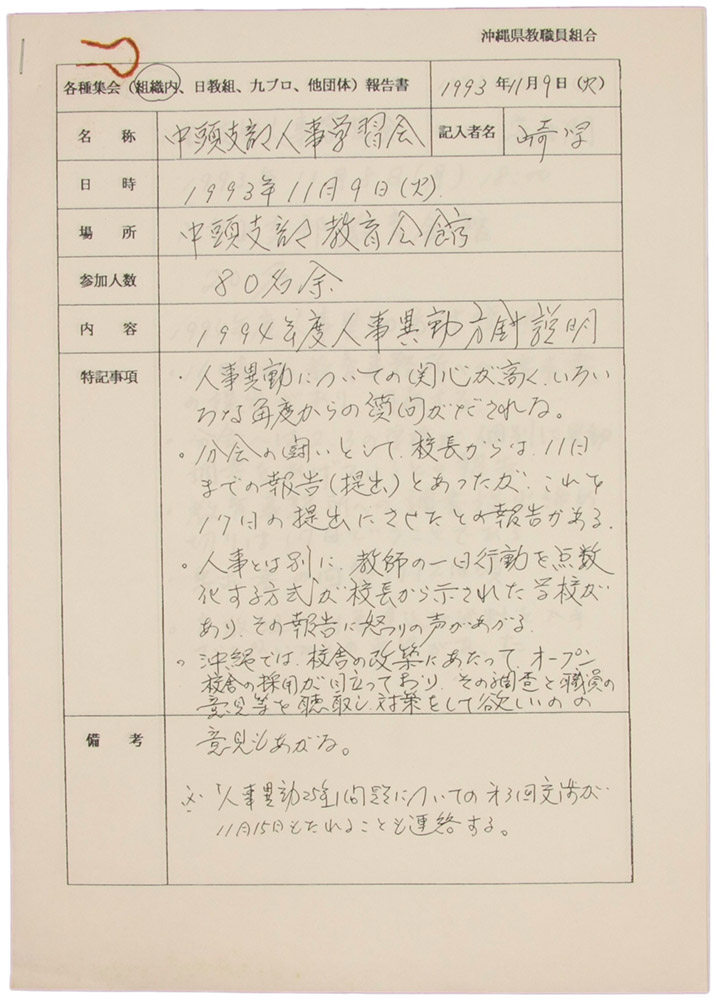 沖縄県教職員組合
各種集会（組織内、日教組、九ブロ、他団体）報告書 1993年11月9日（火）
名 称 中頭支部人事学習会 記入者名 崎浜
日 時 1993年11月9日(火).
場 所 中頭支部教育会館
参加人数 80名余
内 容 1994年度人事異動方針説明
特記事項 ・人事異動についての関心が高く、いろい
ろな角度からの質問がだされる。
。分会の闘いとして、校長からは、11日
までの報告(提出)とあったが、これを
17日の提出にさせたとの報告がある.
。人事とは別に、教師の一日行動を点数
化する方式が校長から示された学校が
あり、その報告に怒りの声があがる.
。沖縄では、校舎の改築にあたって、オープン
校舎の採用が目立っており、その調査と職員の
意見等を聴取し、対策をして欲しいのの
備 考 意見もあがる。
※「人事異動 問題についての第3回交渉が
11月15日もたれることも連絡する。